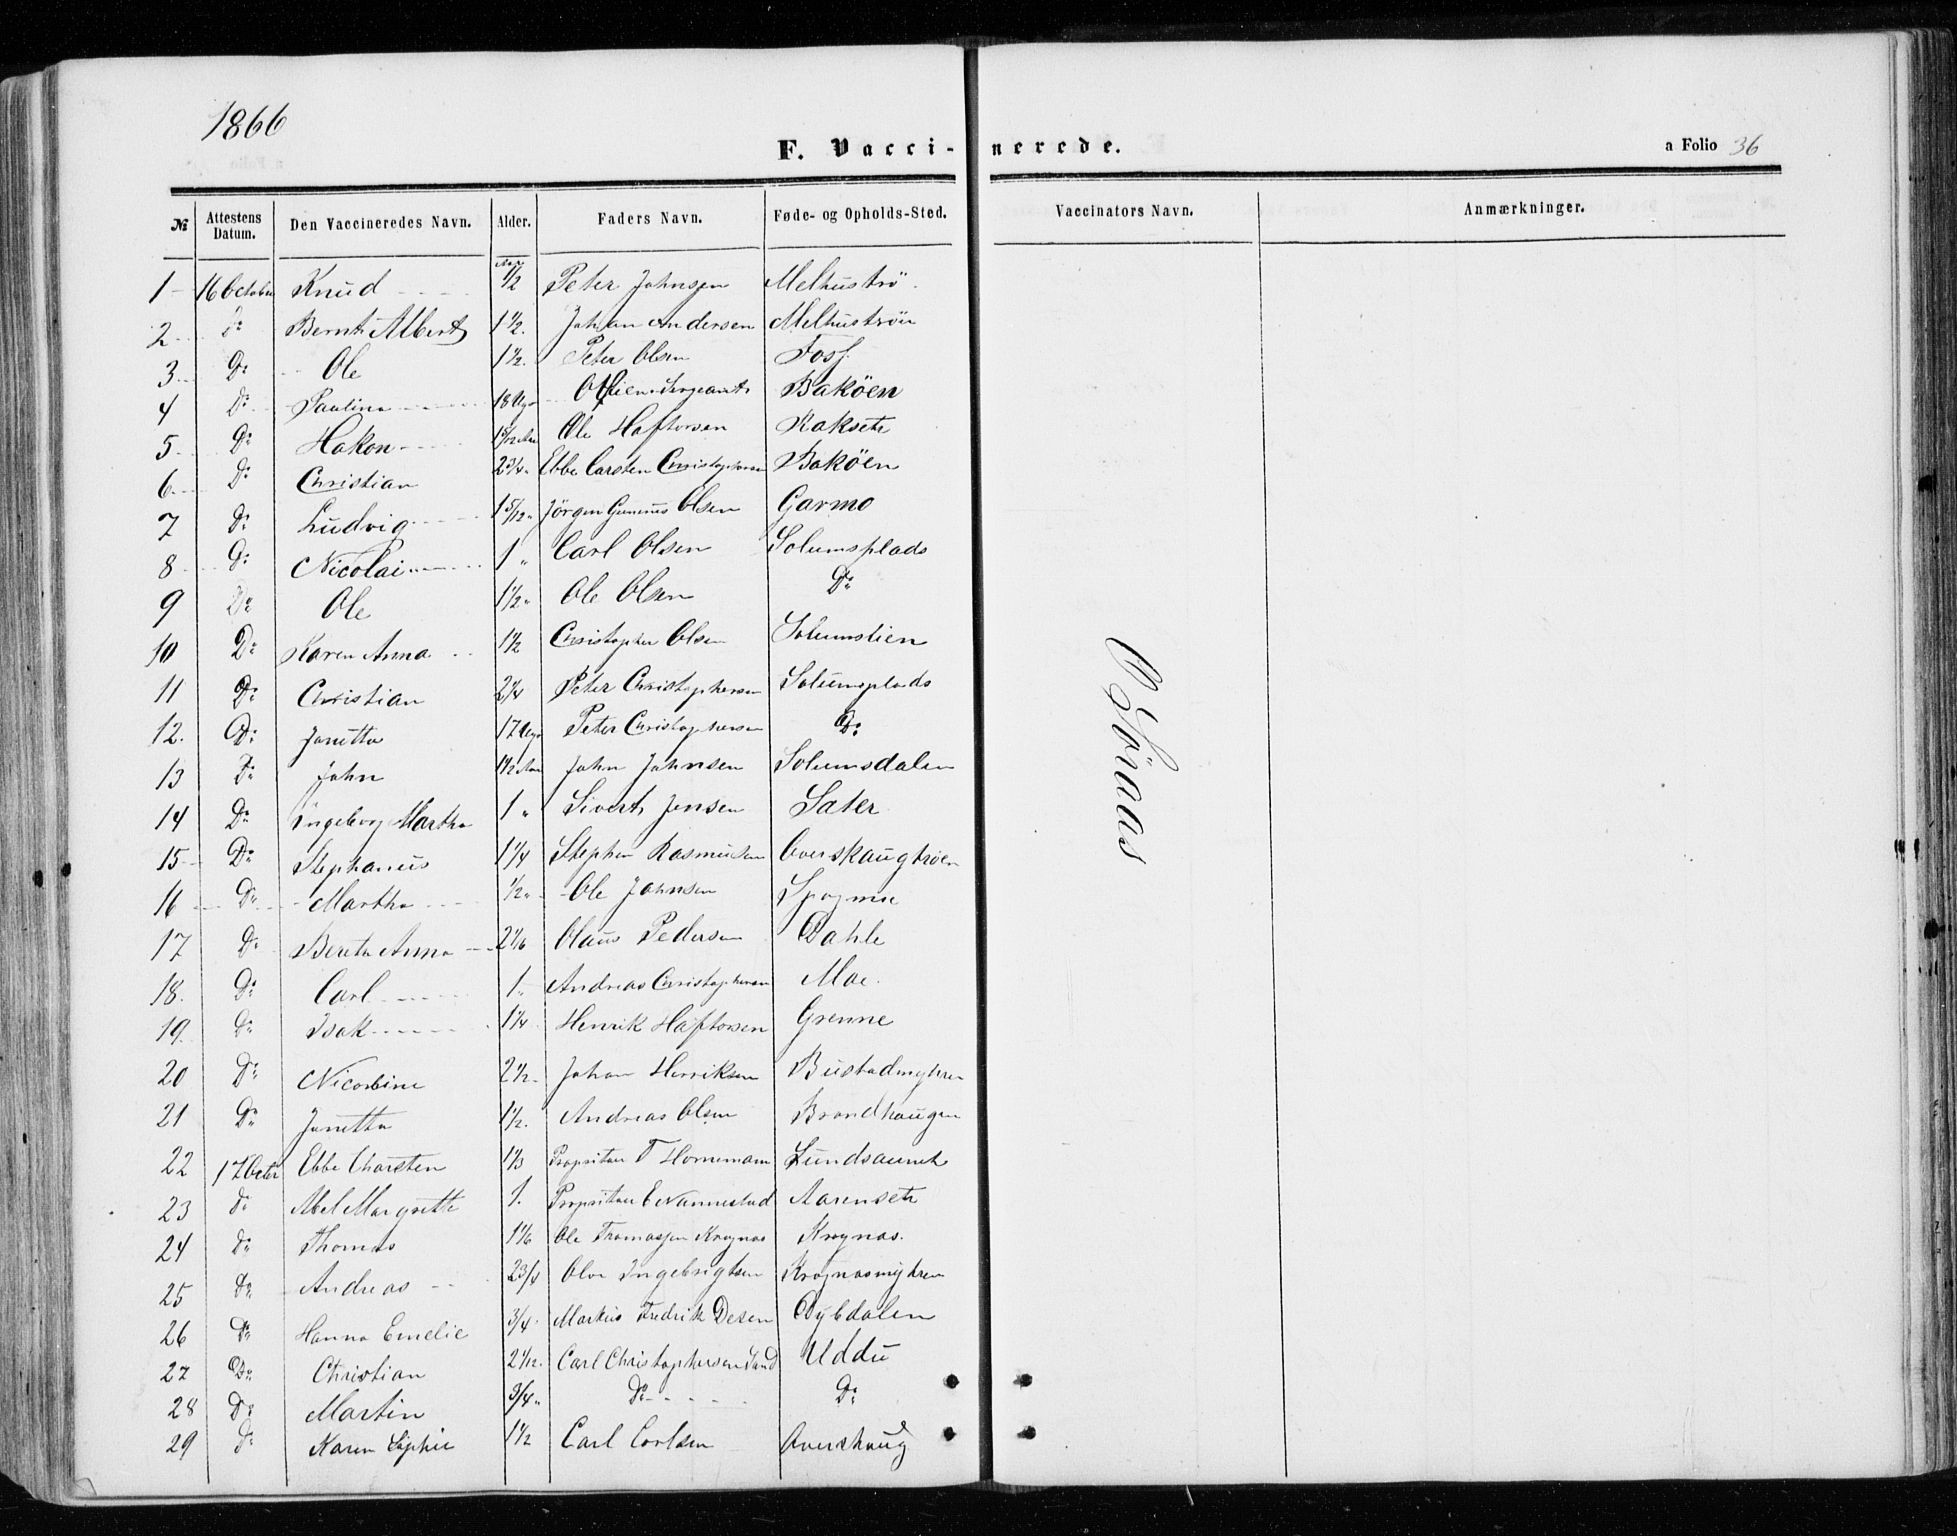 1866
F. Vaccinerede.
a Folio 36
№ Attestens Datum. Den Vaccineredes Navn. Alder. Faders Navn. Føde- og Opholds-Sted. Vaccinators Navn. Anmærkninger.
1 16 October Knud Aar 1/2 Peter Johnsen Melhuströ
2 Do Bernt Albert 1 1/2 Johan Andersen Melhuströen
3 Do Ole 1 1/2 Peter Olsen Foss
4 Do Paulina 18 Uger Sergeant Baköen
5 Do Hakon Ole Haftorsen Kaksete
6 Do Christian 2 3/4 Ebbe Carsten Christophersen Baköen
7 Do Ludvig 1 5/12 Jörgen Gunerius Olsen Garmo
8 Do Nicolai 1 " Carl Olsen Solumsplads
9 Do Ole 1 1/2 " Ole Olsen Do
10 Do Karen Anna 1 1/2 Christopher Olsen Solumslien
11 Do Christian 2 1/4 Peter Christophersen Solumsplads
12. Do Janetta 17 Uger Peter Christophersen Do
13 Do John 1 1/2 Aar John Johnsen Solumsdalen
14 Do Ingeborg Martha 1 " Sivert Jensen Sæter
15 Do Stephanus 1 1/4 Stephen Rasmusen Overskaugtröen
16 Do Martha 1/2 " Ole Johnsen Spogmse
17 Do Bereta Anna 2 1/6 Olaus Pedersen Dahle
18. Do Carl 1 " Andreas Christophersen Moe.
19. Do Isak 1 1/4 Henrik Haftorsen Grenne
20 Do Nicoline 2 1/2 Johan Henriksen Bustadmyhren
21 Do Janetta 1 1/2. Andreas Olsen Brandhaugen
22 17 Octbr Ebbe Charsten 1 1/3 Propritær T Hornemann Lundsaunet
23 Do Abel Margrette 1. Propritær E Nannestad Aarensete
24 Do Thomas 1 1/6 Ole Thomassen Krognæs Krognæs.
25 Do Andreas 2 3/4 Oluv Ingebrigtsen Krognæsmyhren
26 Do Hanna Emelie 3/4 Markus Fredrik Desen Dybdalen
27 Do Christian 2 1/12. Carl Christophersen Sand Uddu
28 Do Martin 3/4 " Do Do
29 Do Karen Sophie 1 1/2 Carl Carlsen Overskaug
O Söraas